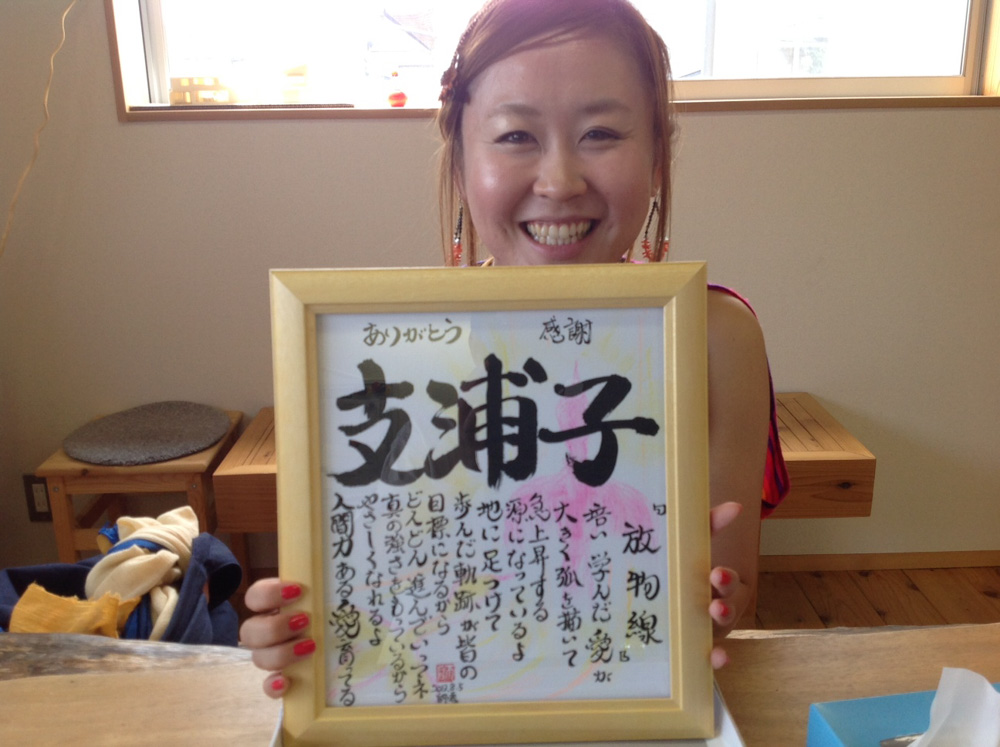 ありがとう
感謝
支浦子
『放物線』
培い学んだ愛が
大きく弧を描いて
急上昇する
源になっているよ
地に足つけて
歩んだ軌跡が皆の
目標になるから
どんどん進んでいってネ
真の強さをもっているから
やさしくなれるよ
人間力ある愛育てる